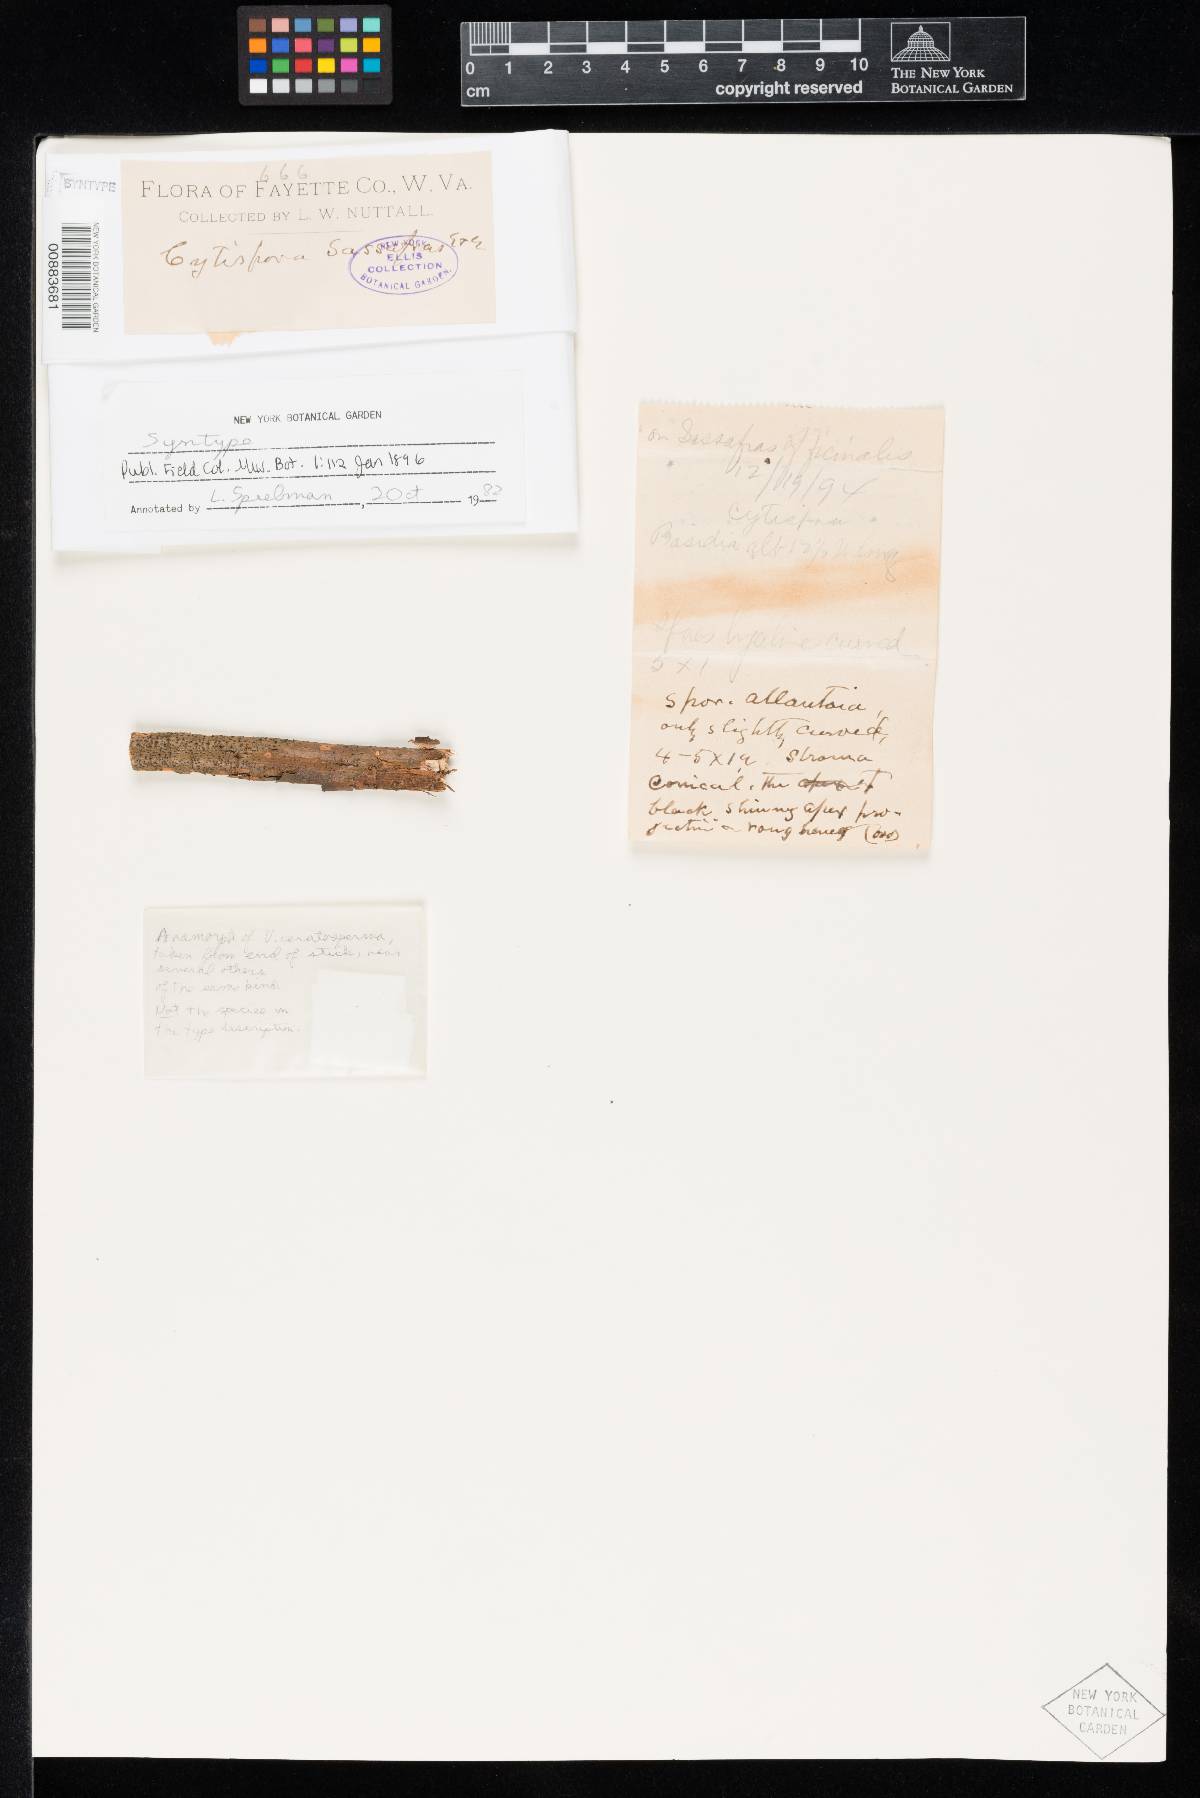 0 1 2 3 4 5 6 7 8 9 10
cm
copyright reserved
THE NEW YORK
BOTANICAL GARDEN
SYNTYPE
NEW YORK BOTANICAL GARDEN
00883681
666
FLORA OF FAYETTE CO., W. VA.
COLLECTED BY L. W. NUTTALL.
Cytispora Sassafras E&E
NEW YORK
ELLIS
COLLECTION
BOTANICAL GARDEN.
NEW YORK BOTANICAL GARDEN
Syntype
Publ. Field Col. Mus. Bot. 1:112 Jan 1896
Annotated by L. Spielman, 20 Oct 1982
on Sassafras officinalis
12/19/94
Cytispora
Basidia long
hyaline curved
5 x 1
spor. allantoid,
only slightly curved,
4-5 x 1 µ. Stroma
conical, the
black shining apex pro-
jecting
Anamorph of V. ceratosperma,
taken from end of stick, near
several others
of the same kind
Not the species in
the type description.
NEW YORK
BOTANICAL
GARDEN